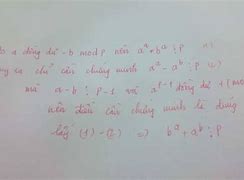 a đồng dư -b mod p nên a^a + b^a ⋮ p (1)
ta chỉ cần chứng minh a^a - a^b ⋮ p (2)
mà a - b ⋮ p-1 và a^{p-1} đồng dư 1 (mod
nên điều cần chứng minh là đúng
lấy (1) - (2) => b^a + a^b ⋮ p